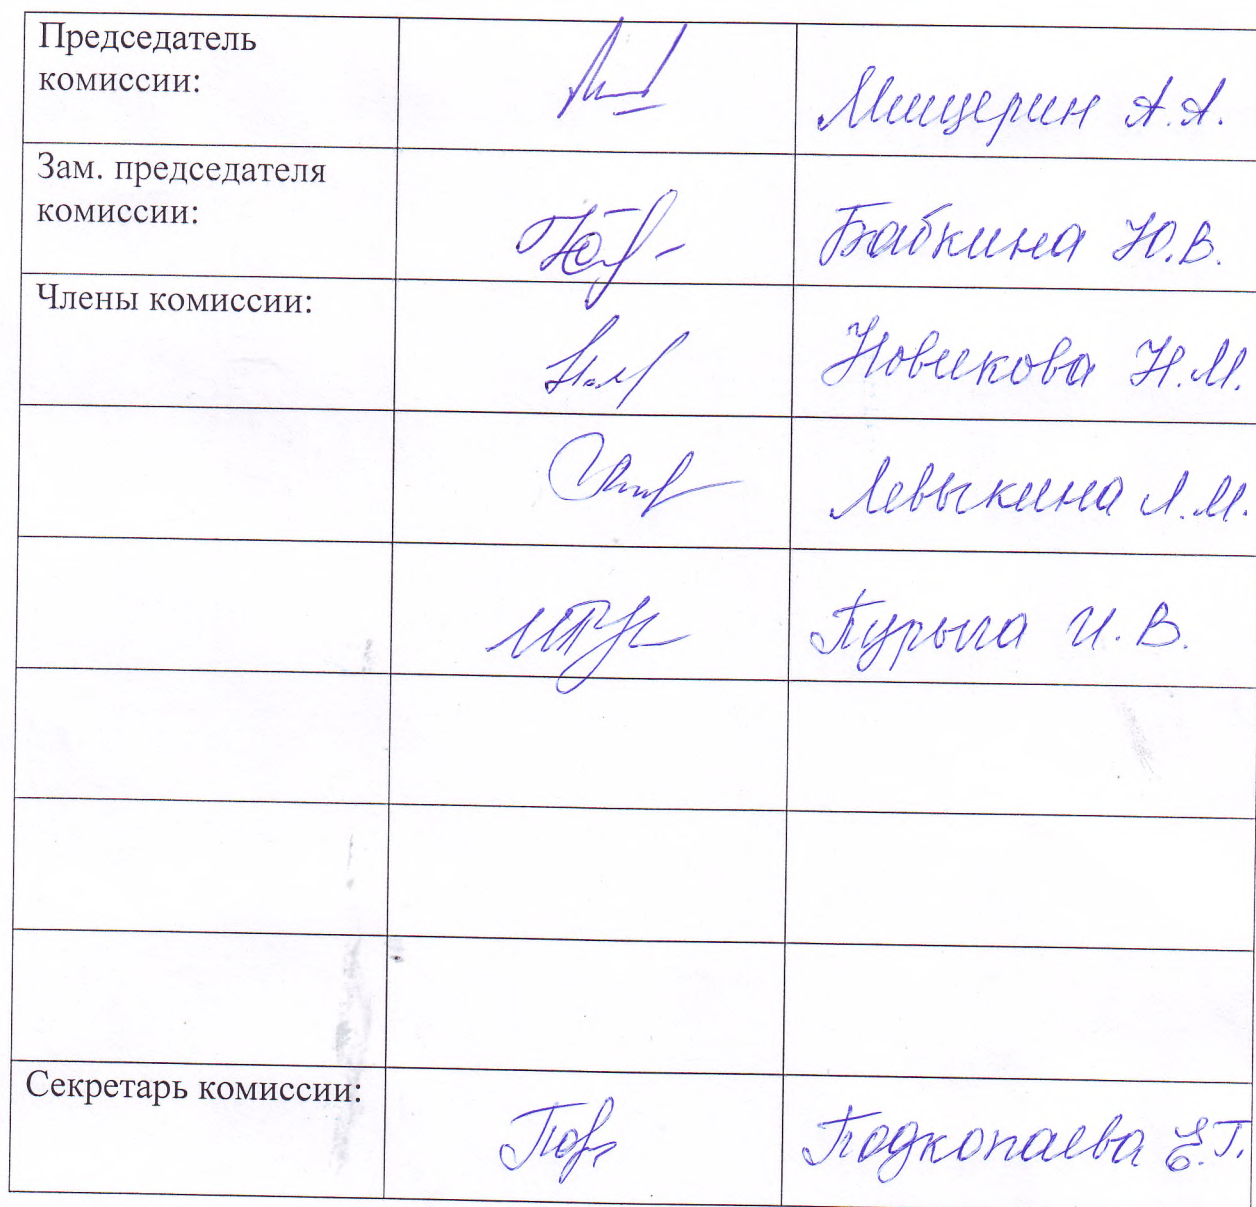 Председатель
комиссии:
Мищерин А.А.
Зам. председателя
комиссии:
Бабкина Ю.В.
Члены комиссии:
Новикова Н.М.
Левыкина Л.М.
Пурыга И.В.
Секретарь комиссии:
Подкопаева Е.Г.